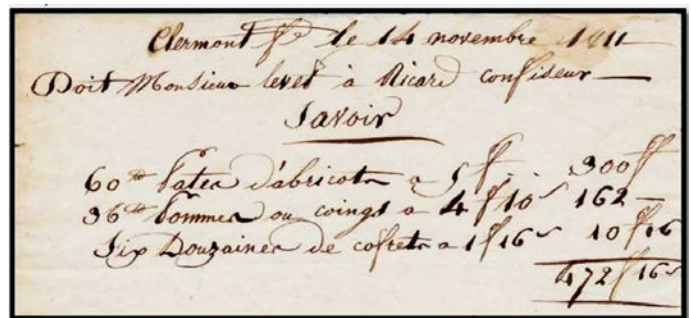 Clermont fd le 14 novembre 1811
Doit Monsieur levet à Ricard confiseur
Savoir
60 Pates d'abricots a 5 f. 300 ff
36 Pommes ou coings a 4 f 10 s 162 —
Six Douzaines de cofrets a 1 f 16 s 10 ff 16
472 ff 16 s